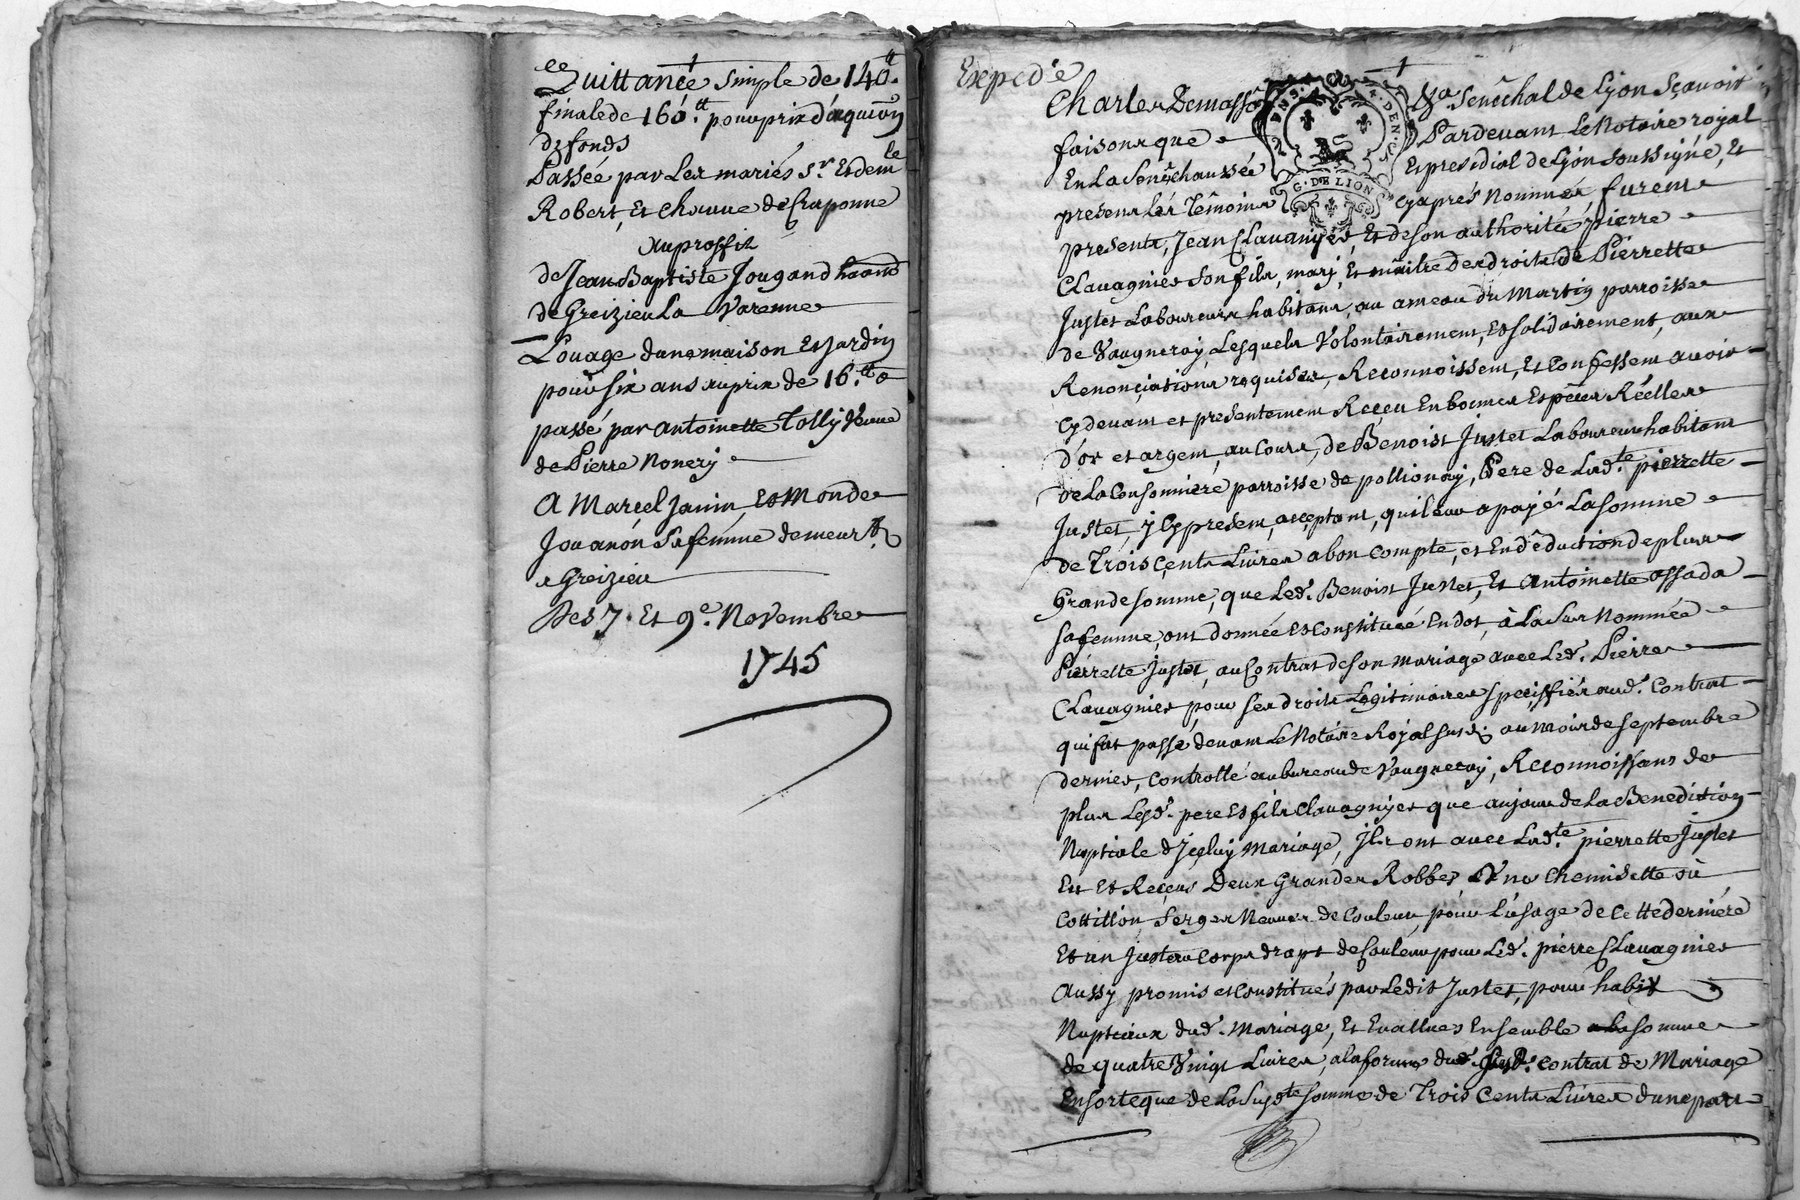 Quittance simple de 140tt.
finale de 160tt. pour prix d'aquion
de fonds
Passée par Les mariés Sr. Et demlle
Robert, Et Chauue de Craponne
Auproffit
de Jean Baptiste Jougand hand
de Greizieu La Varenne
Louage dune maison Et Jardin
pour six ans au prix de 16tt
passé par Antoinette Tolly Veuue
de Pierre Nonery
A Marcel Janin, Et Monde
Jouanon Sa femme demeurt
a Greizieu
Des 7. Et 9e. Novembre
1745
Expedié
Charles Demasso Sénéchal de Lyon Sçavoir
faisons que Pardevant Le Notaire royal
En La Senêchaussée Et presidial de Lyon soussigné, Et
presens Les Têmoins cyaprés Nommés, furent
G. DE LION
presents, Jean Clauagnier, Et de son authorité pierre
Clauagnier son fils, mary, Et maître des droits de Pierrette
Justet Laboureurs habitans, au ameau du Martin parroisse
de Vaugneray, Lesquels Volontairement, Et solidairement, aux
Renonciations requises, Reconnoissent, Et Confessent auoir
Cydeuant et presentement Receu En bonnes Espèces Réelles
d'or et argent, au cours, de Benoist Justet Laboureur habitant
de La Consonniere parroisse de pollionay, Pere de Ladte. pierrette
Justet, jcy present, acceptant, qui leur a payé La somme
de Trois Cents Liures abon compte, et En déduction de plus
Grande somme, que Led. Benoist Justet, Et Antoinette Assada
sa femme, ont donnée Et Constituée En dot, à La sus Nommée
Pierrette Justet, au Contrat de son mariage avec Led. Pierre
Clauagnier pour ses droits Legitimaires specifiés aud. Contrat
qui fut passé deuant Le Notaire Royal susd. au mois de septembre
dernier, Controllé au bureau de Vaugneray, Reconnoissans de
plus Lesd. pere Et fils Clauagnier que au jour de La Benediction
Nuptiale d'Jceluy Mariage, Jls ont auec Ladte. pierrette Justet
Eu Et Receus Deux Grandes Robbes, Vne Chemisette où
Cottillon, Serges Neuues de Couleur, pour L'usage de Cette derniére
Et un Justeau corps drapt de Couleur pour Led. pierre Clauagnier
Aussy promis et Constitués par Ledit Justet, pour habit
Nuptiaux dud. Mariage, Et Evallués Ensemble a la somme
de quatre Vingt Liures, a la forme dud. susd. contrat de Mariage
Ensorte que de La Susdte somme de Trois Cents Liures dune part